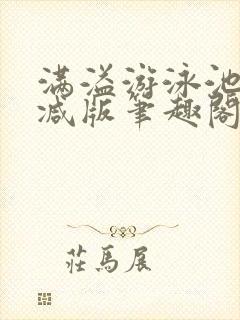 满溢游泳池
减版笔趣阁
莊馬展